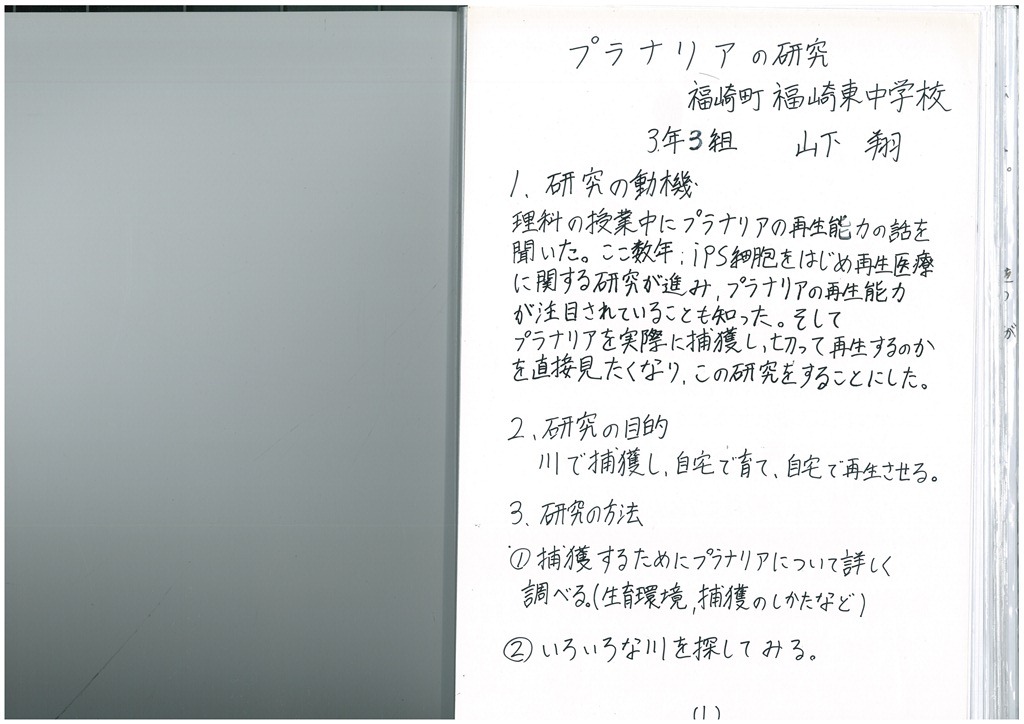 プラナリアの研究
福崎町 福崎東中学校
3年3組 山下 翔
1、研究の動機
理科の授業中にプラナリアの再生能力の話を
聞いた。ここ数年、iPS細胞をはじめ再生医療
に関する研究が進み、プラナリアの再生能力
が注目されていることも知った。そして
プラナリアを実際に捕獲し、切って再生するのか
を直接見たくなり、この研究をすることにした。
2、研究の目的
川で捕獲し、自宅で育て、自宅で再生させる。
3、研究の方法
①捕獲するためにプラナリアについて詳しく
調べる。(生育環境、捕獲のしかたなど)
②いろいろな川を探してみる。
(1)